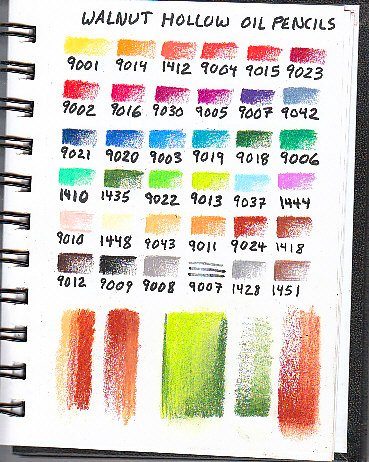 WALNUT HOLLOW OIL PENCILS
9001 9014 1412 9004 9015 9023
9002 9016 9030 9005 9007 9042
9021 9020 9003 9019 9018 9006
1410 1435 9022 9013 9037 1444
9010 1448 9043 9011 9024 1418
9012 9009 9008 9007 1428 1451